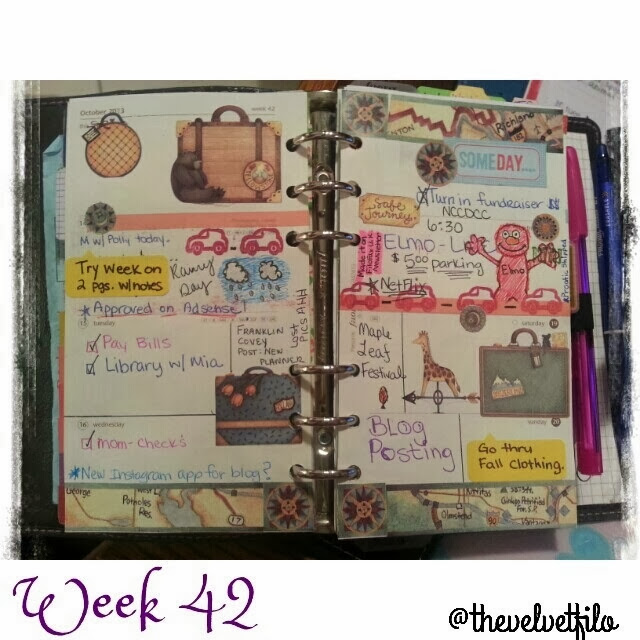 October 2013
week 42
M w/ Polly today.
Rainy
Day
Try Week on
2 pgs. w/notes
*Approved on Adsense!
15 tuesday
Pay Bills
Library w/ Mia
FRANKLIN
COVEY
POST: NEW
PLANNER
LOST
PICS AHH
16 wednesday
Mom-checks
*New Instagram app for blog?
George
Potholes
Res.
17
Richland
SOMEDAY
Safe
Journey
Turn in fundraiser $$
NCCDCC
6:30
ELMO-L
$5.00 parking
*Netflix
Elmo
Maple
Leaf
Festival
saturday 19
BLOG
Posting
sunday 20
Go thru
Fall clothing.
Ginkgo Petrified
For. S.P.
90
Week 42
@thevelvetfilo